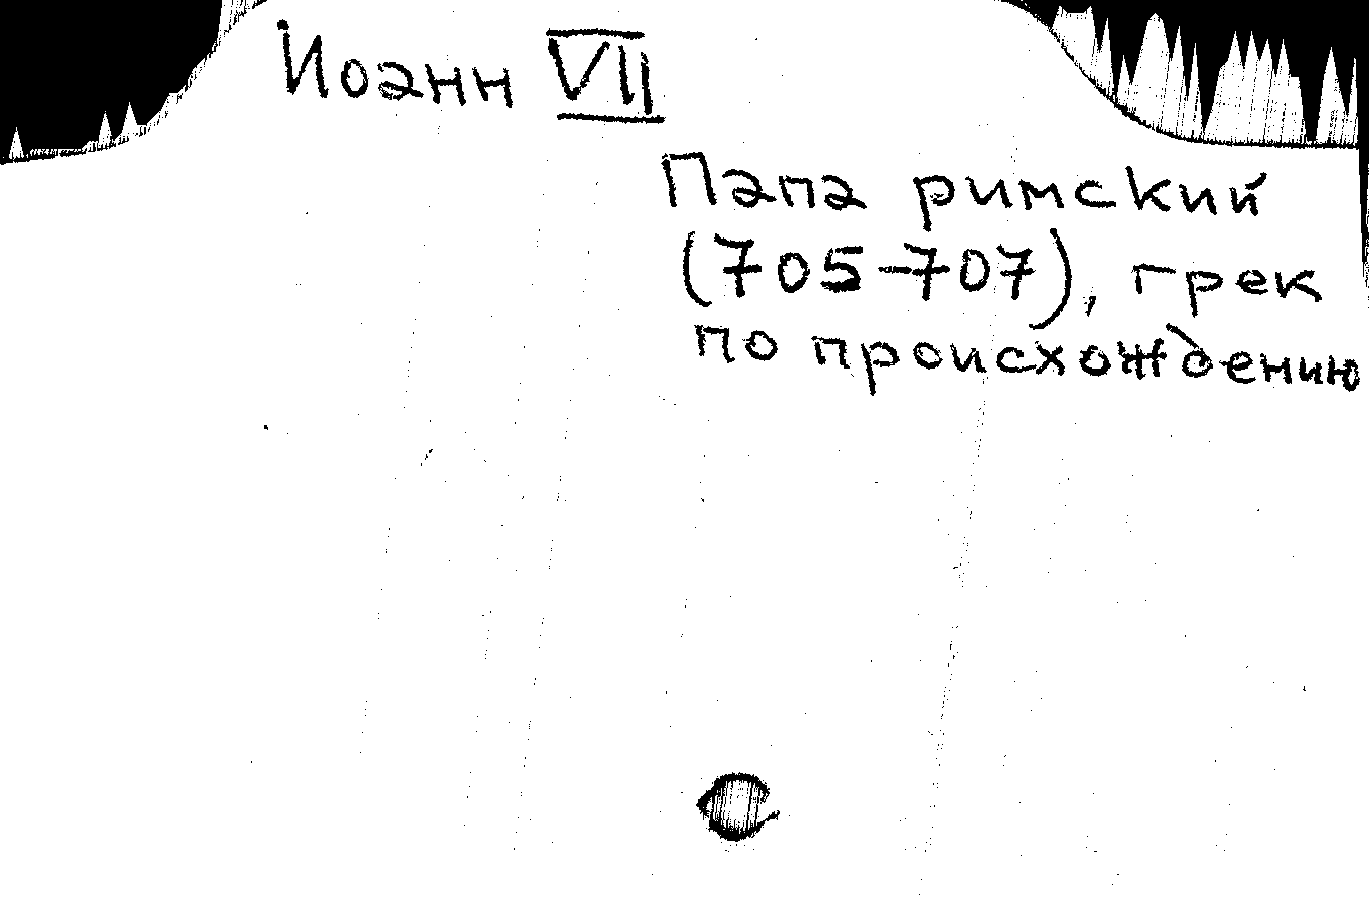 Иоанн VII
Папа римский
(705-707), грек
по происхождению